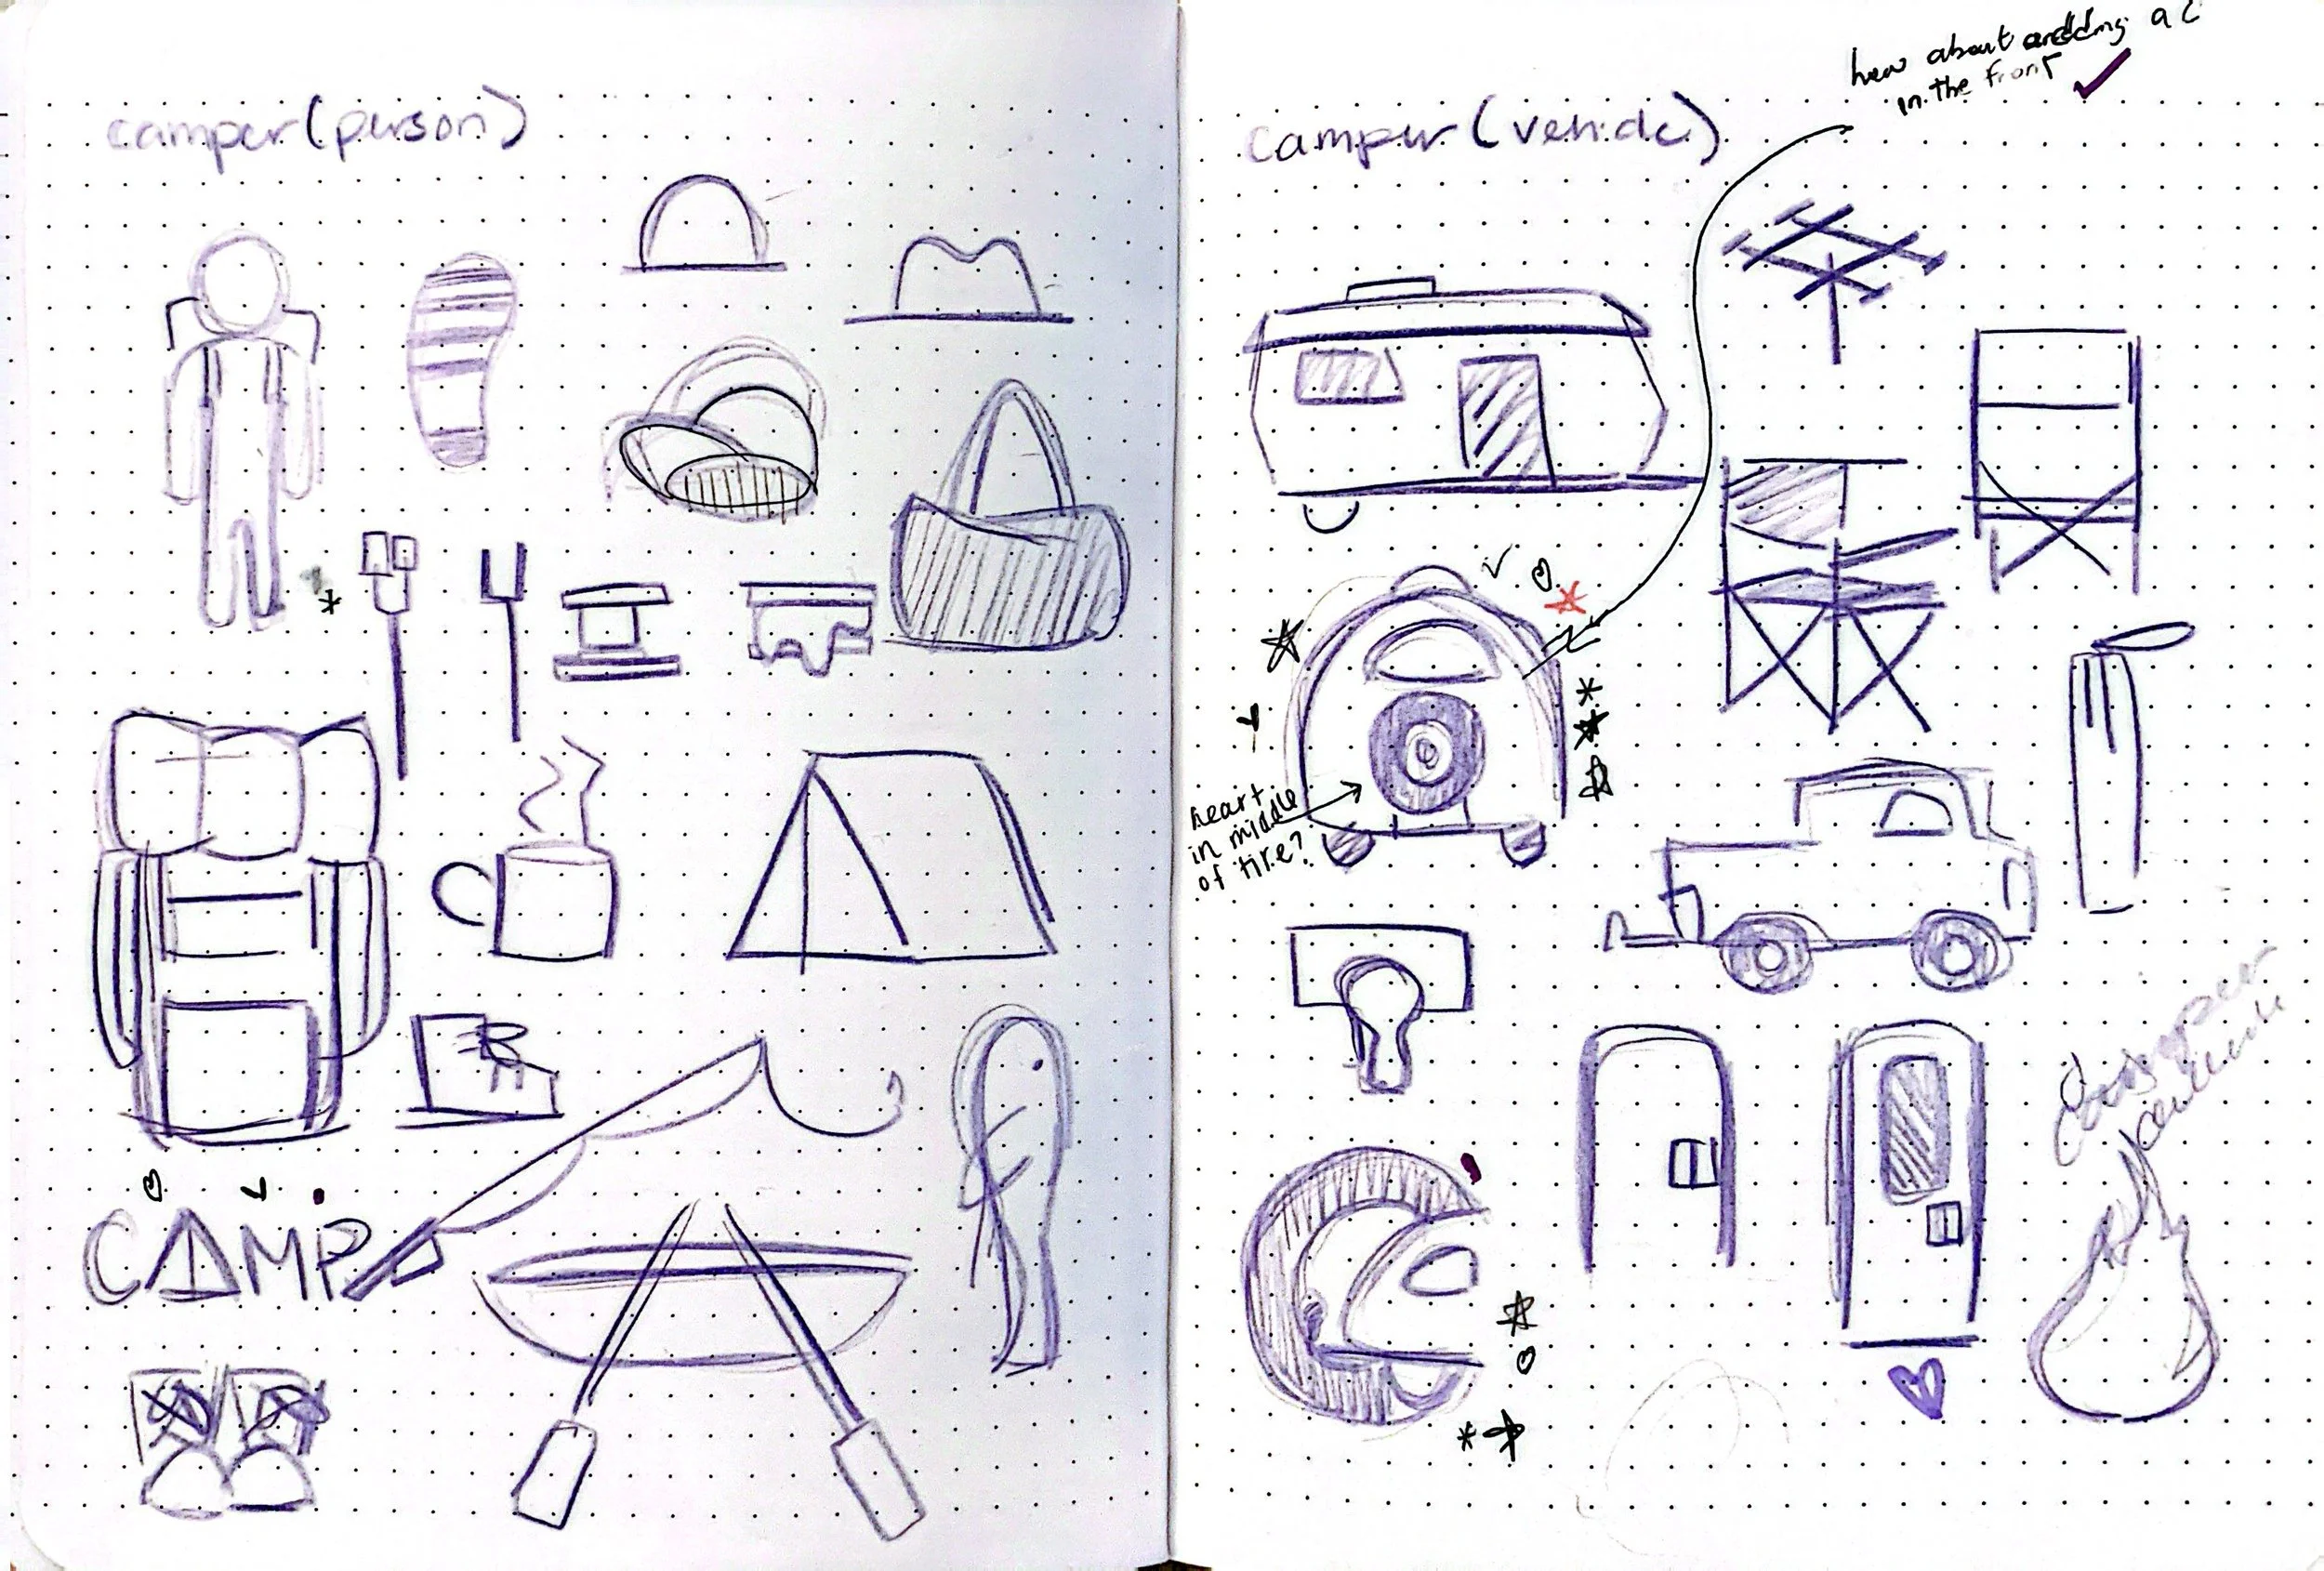 camper (person)
CAMP
how about adding a C
in the front
camper (vehicle)
heart
in middle
of tire?